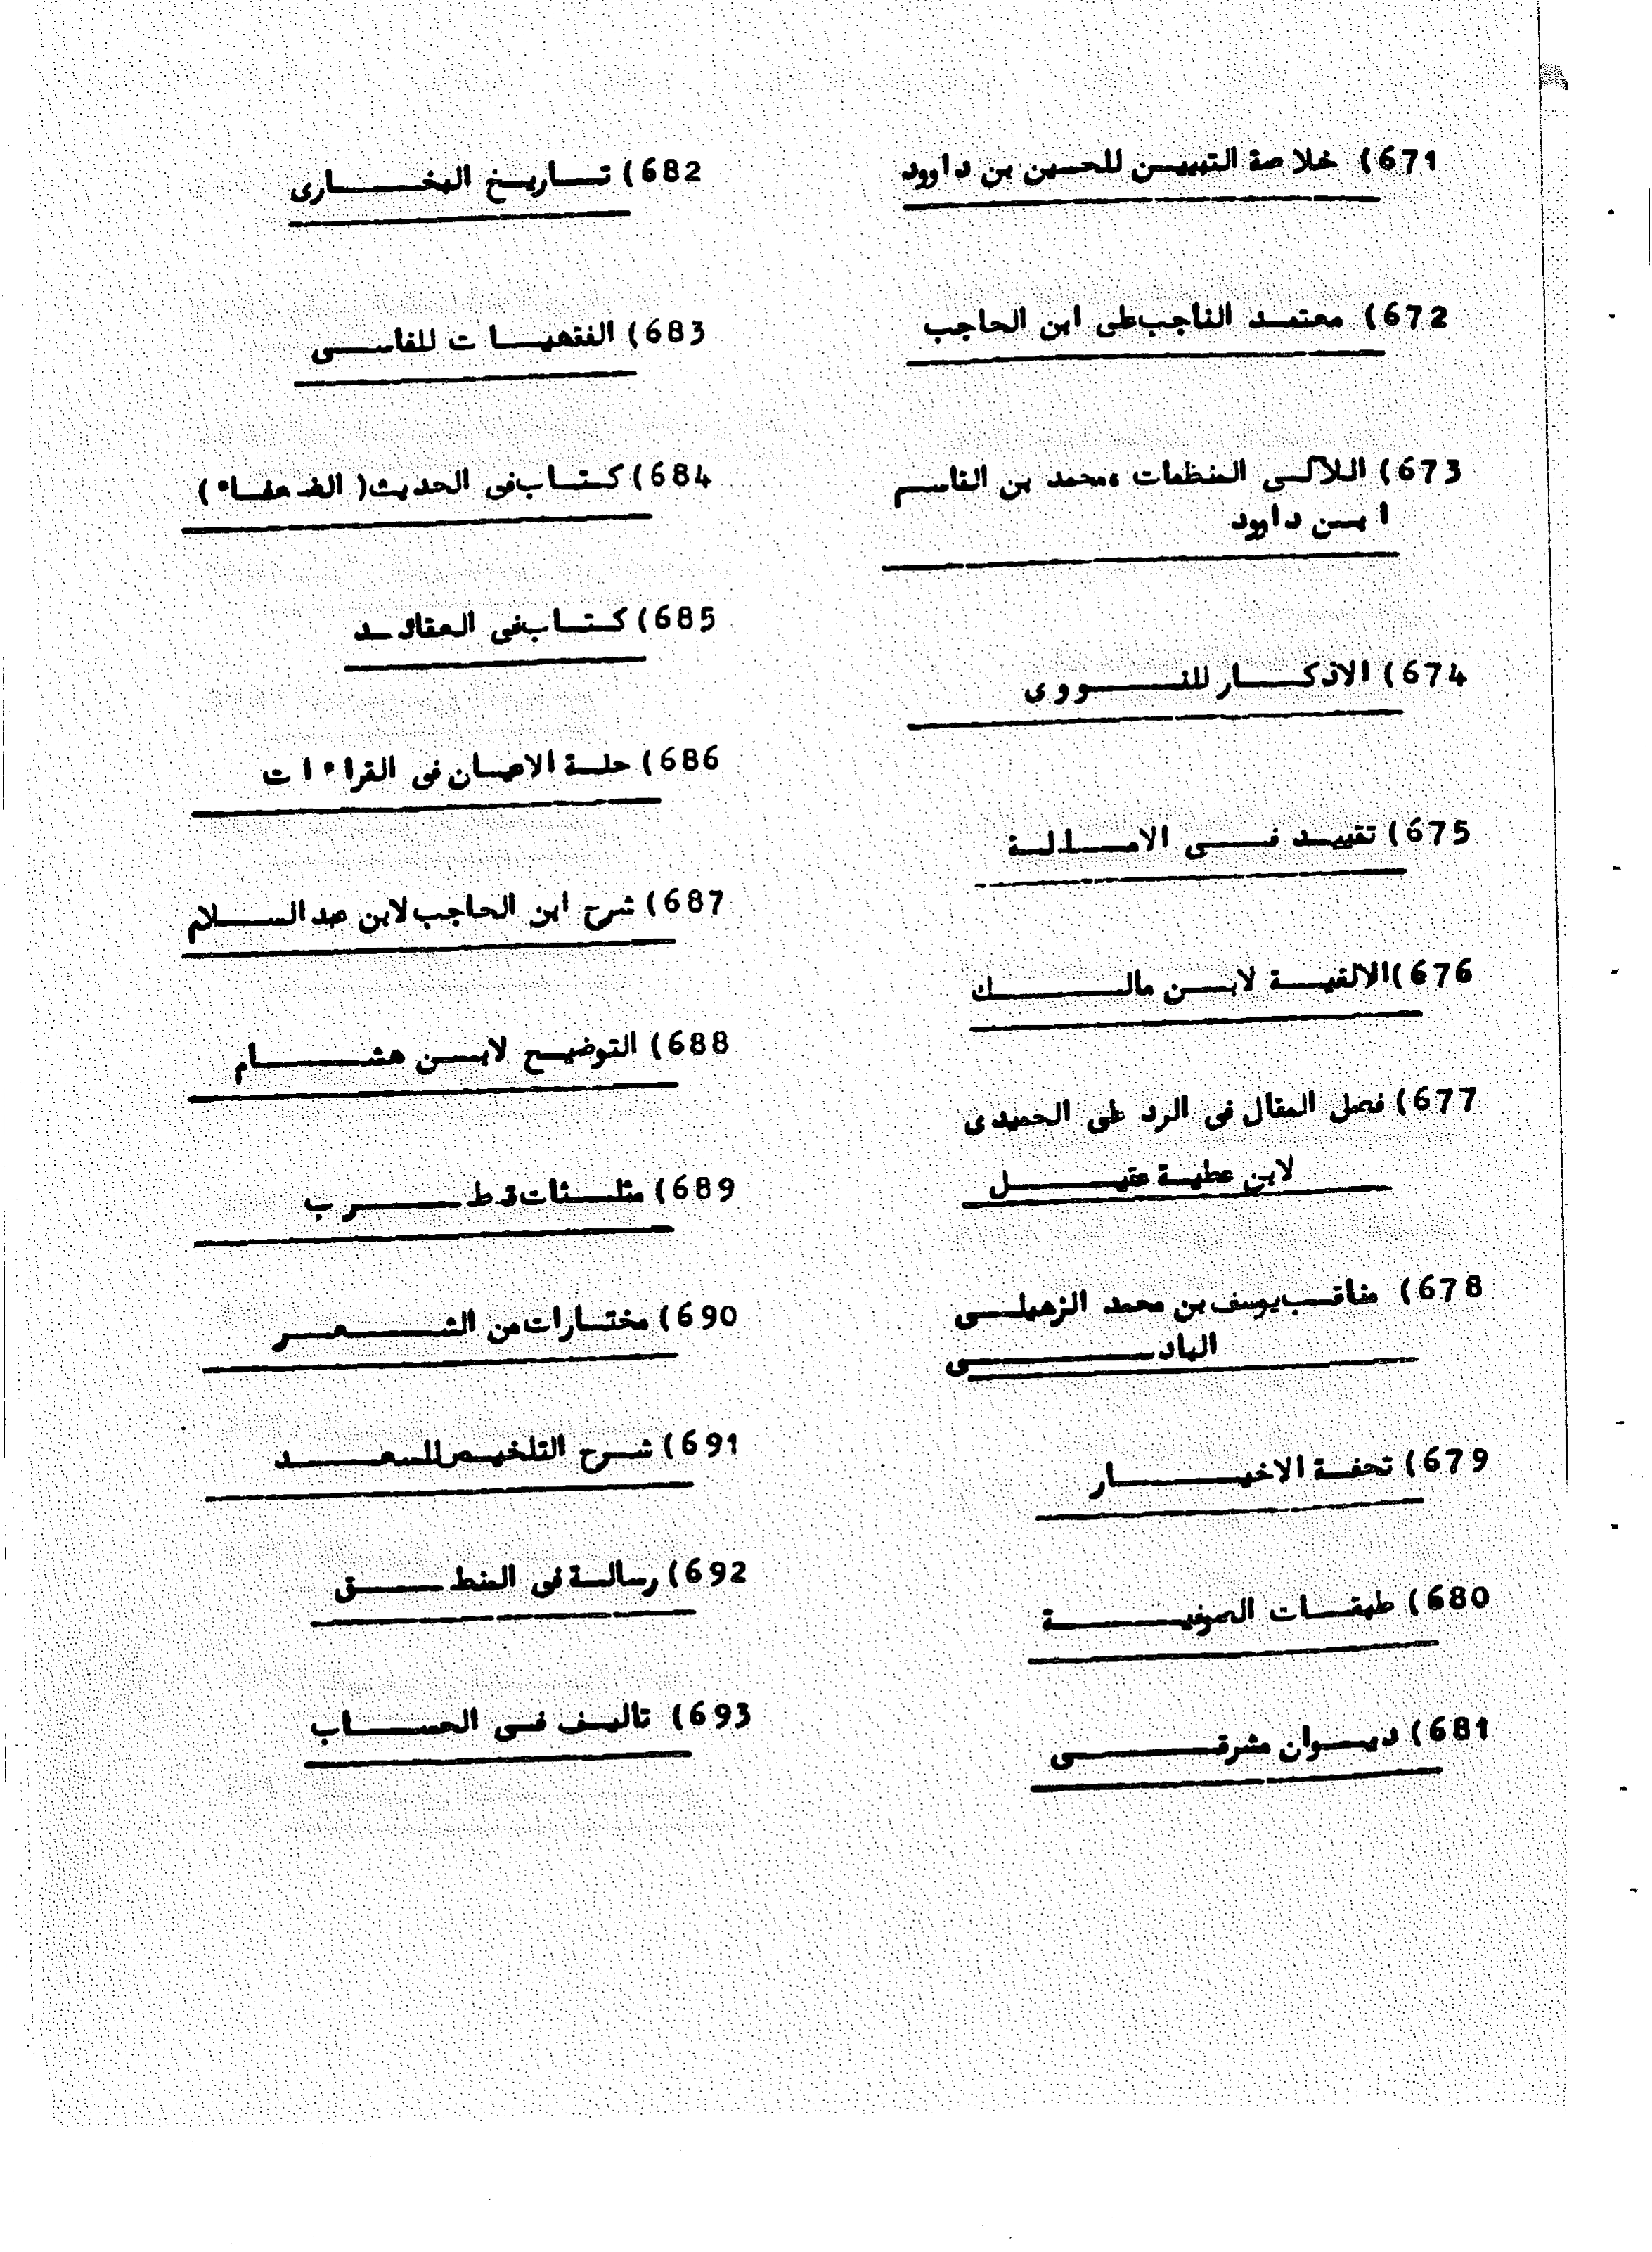 671) خلاصة التبيين للحسين بن داوود
672) معتمد الناجب على ابن الحاجب
673) اللآلى المنظمات، محمد بن القاسم
ابن داوود
674) الاذكار للنووى
675) تقييد فى الامالة
676) الالفية لابن مالك
677) فصل المقال فى الرد على الحميدى
لابن عطية عقيل
678) مناقب يوسف بن محمد الزهيلى
البادسى
679) تحفة الاخيار
680) طبقات الصوفية
681) ديوان مشرقى
682) تاريخ البخارى
683) الفقهيات للفاسى
684) كتاب فى الحديث (الضعفاء)
685) كتاب فى العقائد
686) حلة الاعيان فى القراءات
687) شرح ابن الحاجب لابن عبد السلام
688) التوضيح لابن هشام
689) مثلثات قطرب
690) مختارات من الشعر
691) شرح التلخيص للسعد
692) رسالة فى المنطق
693) تاليف فى الحساب